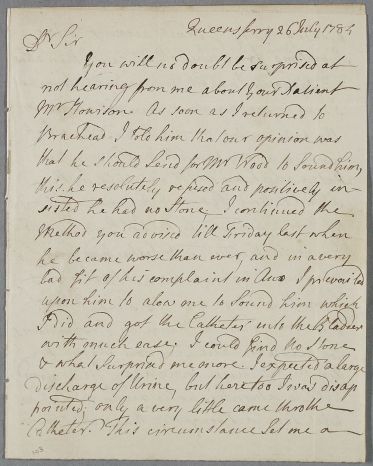 Queensferry 26 July 1784
Dr Sir
You will no doubt be surprised at
not hearing from me about your Patient
Mr Howison. As soon as I returned to
Braehead I told him that our opinion was
that he should send for Mr Wood to Sound him,
this he resolutely refused and positively in-
sisted he had no Stone. I continued the
Method you advised till Friday last when
he became worse than ever, and in a very
bad fit of his complaint in I prevailed
upon him to alow me to Sound him which
I did and got the Catheter into the Bladder
with much ease; I could find no Stone
& what Surprised me more I expected a large
discharge of Urine, but here too I was disap
pointed; only a very little came thro the
Catheter. This circumstance set me a